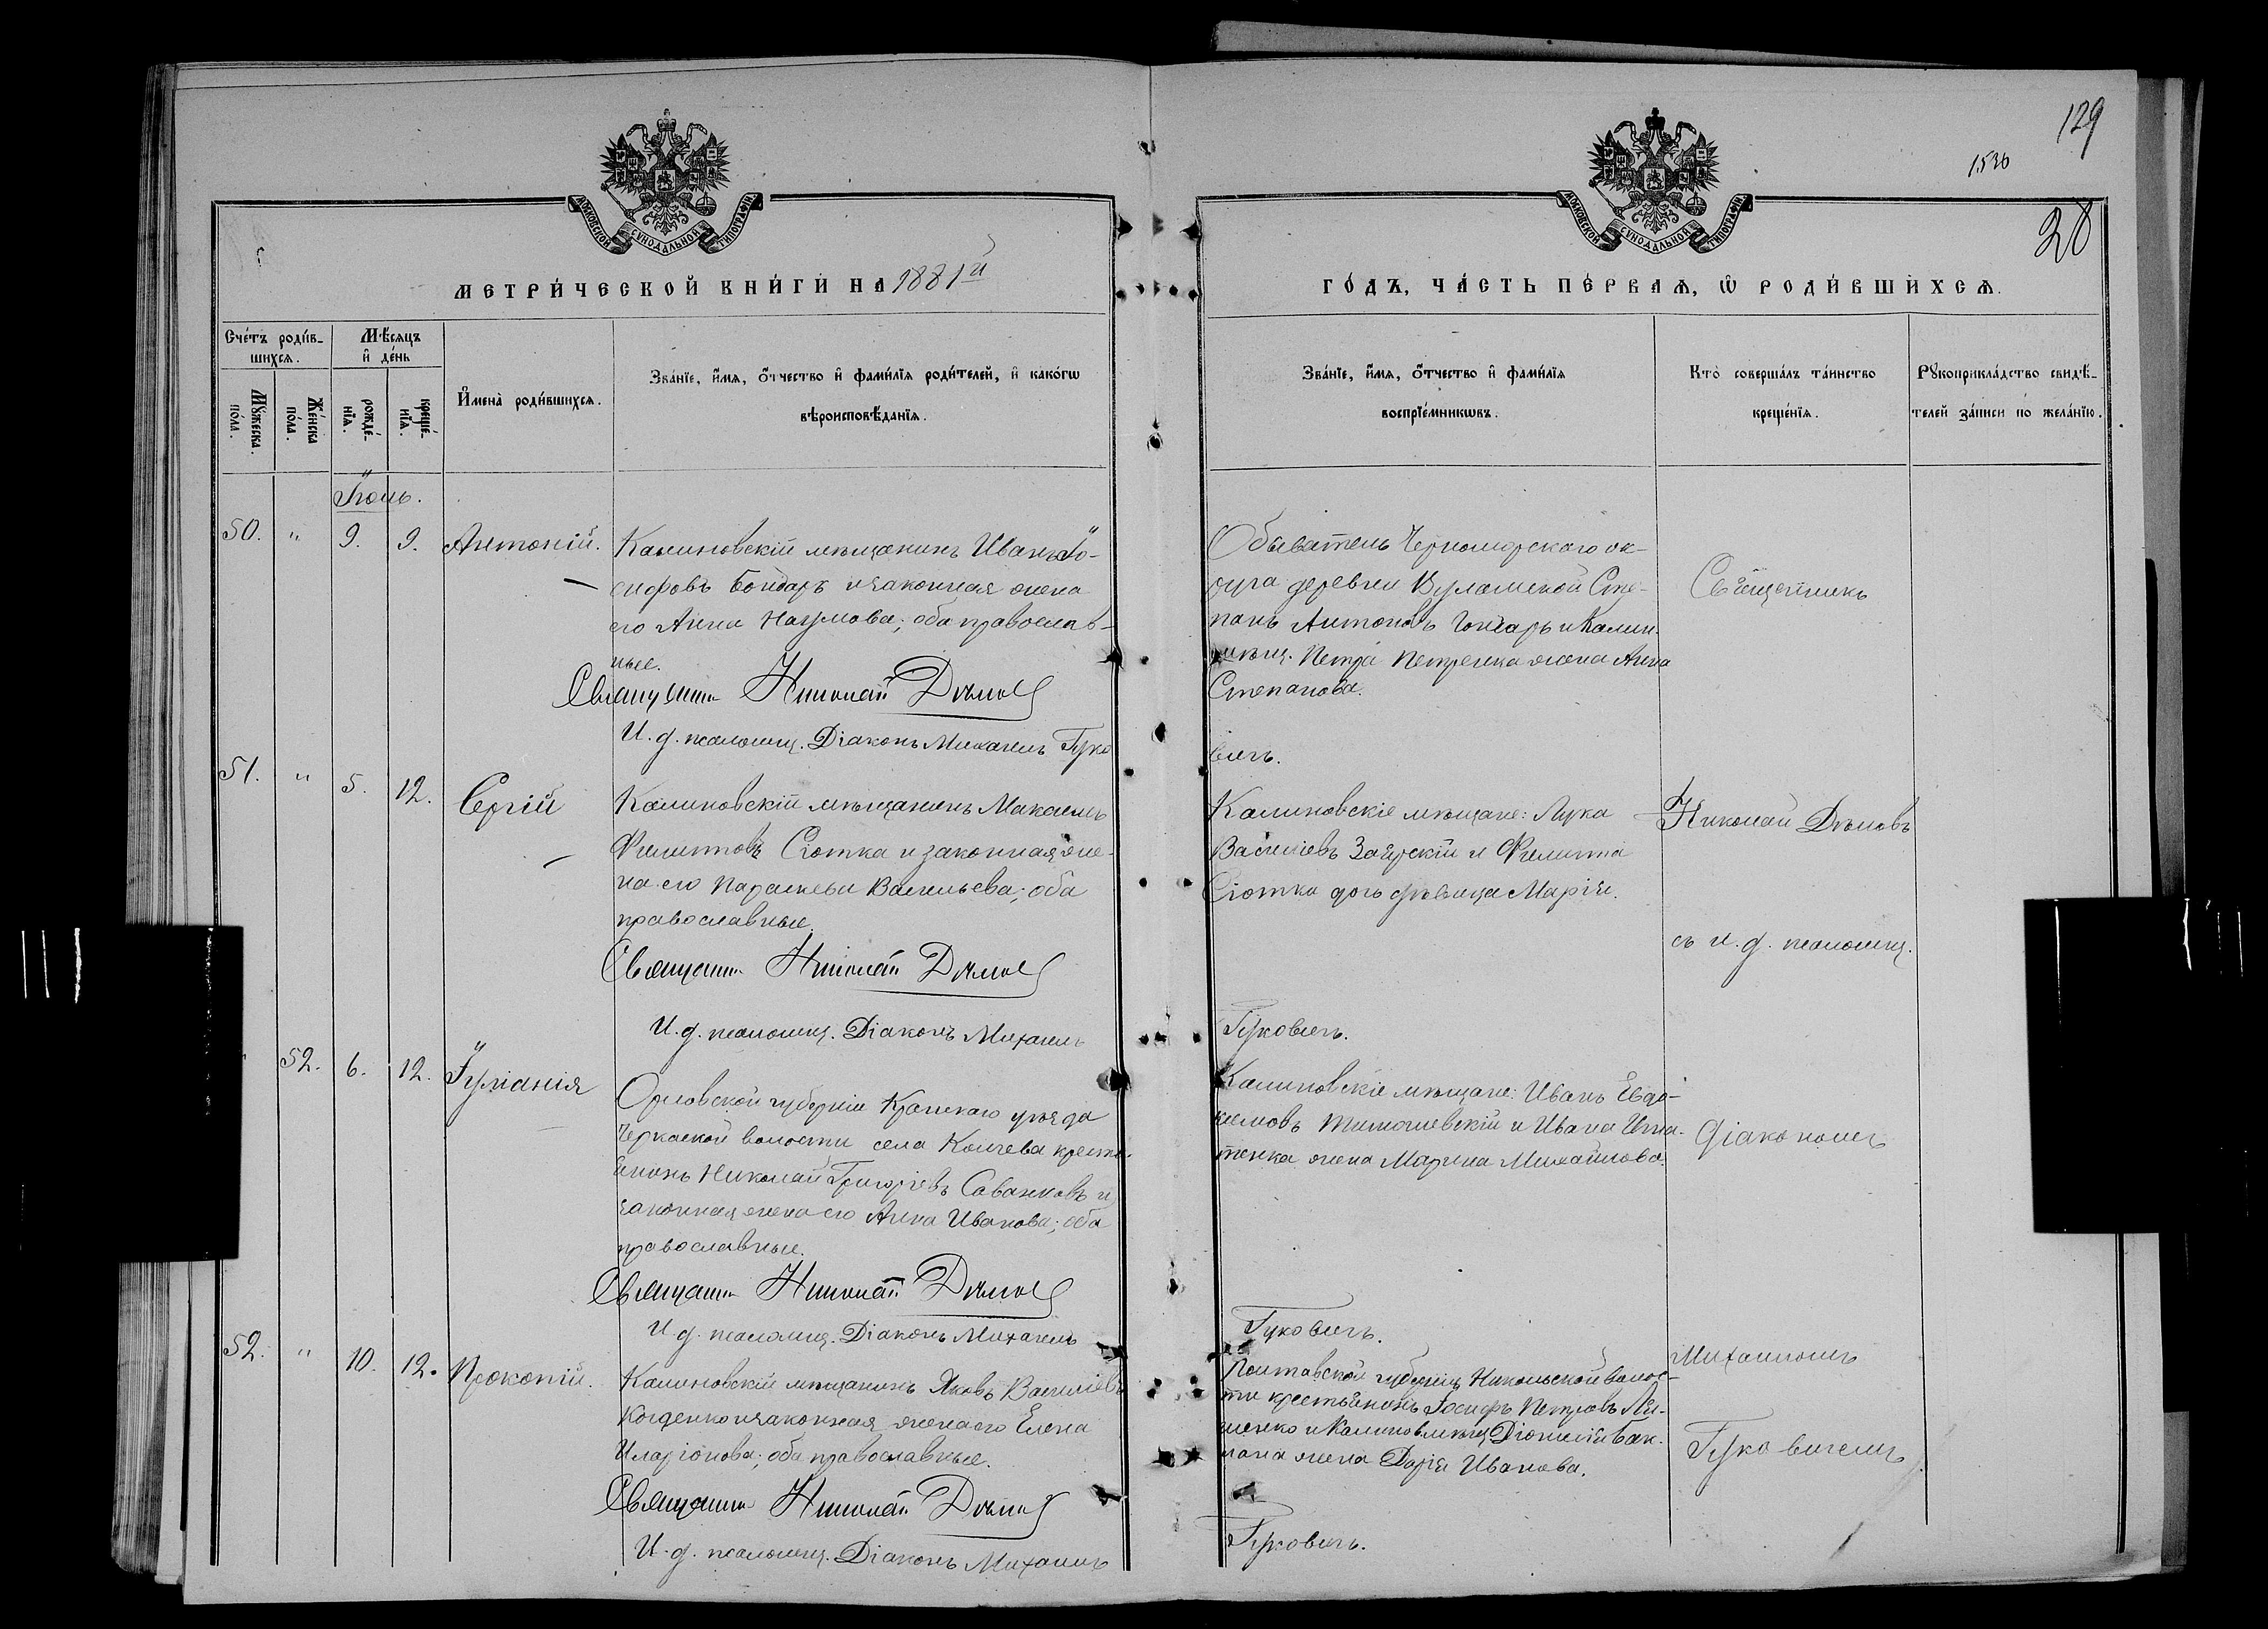 129
1530
28
МОСКОВСКОЙ СУНОДАЛЬНОЙ ТИПОГРАФІИ
МОСКОВСКОЙ СУНОДАЛЬНОЙ ТИПОГРАФІИ
МЕТРИ́ЧЕСКОЙ КНИ́ГИ НА 1881й
ГО́ДЪ, ЧА́СТЬ ПЕ́РВАѦ, Ѡ РОДИ́ВШИХСѦ.
Сче́тъ роди́в-
шихсѧ.
Мѣ́сѧцъ
и҆ де́нь
Мꙋ́жеска по́ла.
Же́нска по́ла.
рожде́-нїѧ.
креще́-нїѧ.
И҆мена̀ роди́вшихсѧ.
Зва́нїе, и҆́мѧ, ѻ҆́тчество и҆ фами́лїѧ роди́телей, и҆ како́гѡ
вѣроисповѣ́данїѧ.
Зва́нїе, и҆́мѧ, ѻ҆́тчество и҆ фами́лїѧ
воспрїе́мникѡвъ.
Кто̀ соверша́лъ та́инство
креще́нїѧ.
Рꙋкоприкла́дство свидѣ́-
телей за́писи по жела́нїю.
Іюнь.
50. " 9. 9. Антоній.
Калиновскій мѣщанинъ Иванъ Іо-
сифовъ Бондарь и законная жена
его Анна Наумова; оба православ-
ные.
Священникъ Николай Дѣмовъ
И. д. псаломщ. Діаконъ Михаилъ Гуко
Обыватель Черноморскаго ок-
руга деревни Вуламской Сте-
панъ Антоновъ Гончарь и Калин.
мѣщ. Петра Петренка жена Анна
Степанова.
вичъ.
Священникъ
51. " 5. 12. Сергій
Калиновскій мѣщанинъ Максимъ
Филипповъ Сютка и законная же-
на его Параскева Васильева; оба
православные.
Священникъ Николай Дѣмовъ
И. д. псаломщ. Діаконъ Михаилъ
Калиновскіе мѣщане: Лука
Василіевъ Заярскій и Филиппа
Сютки дочь дѣвица Марія.
Гуковичъ.
Николай Дѣмовъ
съ и. д. псаломщ.
52. 6. 12. Іуліанія
Орловской губерніи Кромскаго уѣзда
Черкаской волости села Колчева кресть-
янинъ Николай Григорьевъ Саванковъ и
законная жена его Анна Иванова; оба
православные.
Священникъ Николай Дѣмовъ
И. д. псаломщ. Діаконъ Михаилъ
Калиновскіе мѣщане: Иванъ Евдо-
кимовъ Тимошевскій и Ивана Игна-
тенка жена Марина Михайлова.
Гуковичъ.
Діакономъ
52. " 10. 12. Прокопій.
Калиновскій мѣщанинъ Яковъ Василіевъ
Когденко и законная жена его Елена
Иларіонова; оба православные.
Священникъ Николай Дѣмовъ
И. д. псаломщ. Діаконъ Михаилъ
Полтавской губерніи Никольской волос-
ти крестьянинъ Іосифъ Петровъ
и Калинов. мѣщ. Діонисія Бак-
лана жена Дарія Иванова.
Гуковичъ.
Михаиломъ
Гуковичемъ